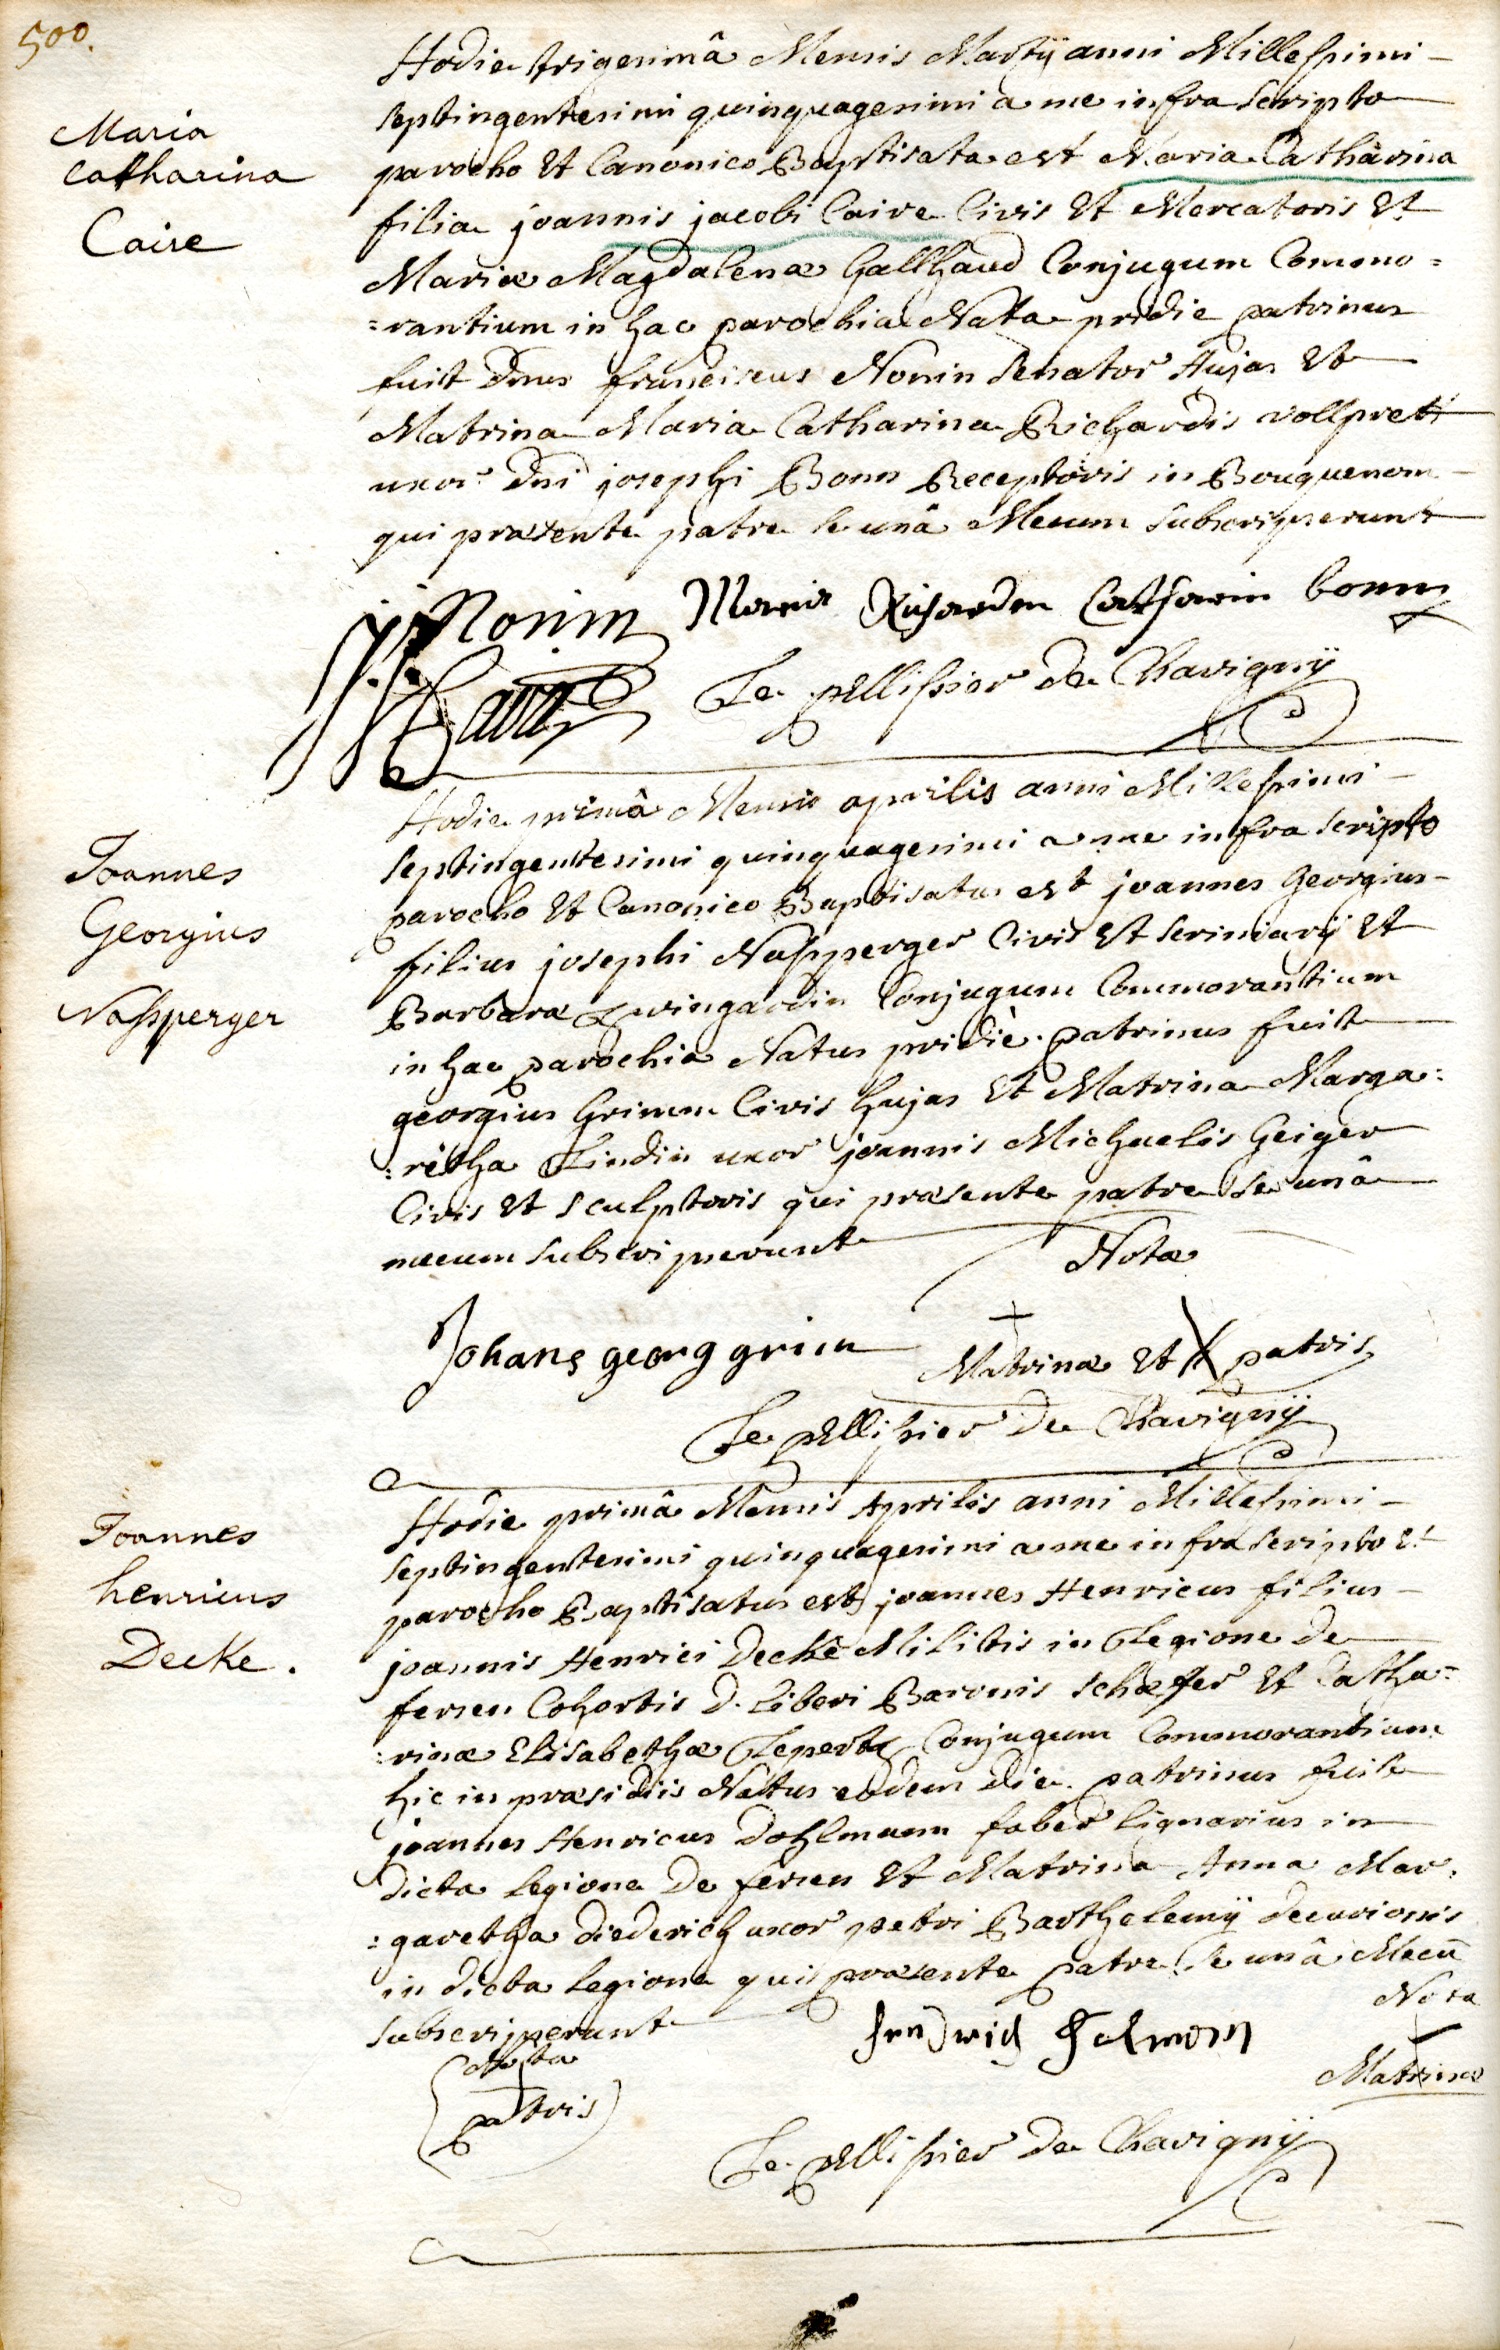 500.
Maria
Catharina
Caire
Hodie trigesimâ Mensis Martÿ anni Millessimi -
septingentesimi quinquagesimi a me infra scripto
parocho Et Canonico Baptisata est Maria Catharina
filia joannis jacobi Caire Civis Et Mercatoris Et
Mariæ Magdalenæ Gallhaud Conjugum Commo =
= rantium in hac parochia Nata pridie patrinus
fuit Dnus franciscus Nonin Senator Hujas Et
Matrina Maria Catharina Richardis vollpret
uxor Dni josephi Bonn Receptoris in Bouquenom -
qui præsente patre se unâ Mecum subscripserunt
Nonin Maria Richardin Catharin bonn
Caire Le pellissier De Chavignÿ
Joannes
Georgius
Nassperger
Hodie primâ Mensis aprilis anni Millessimi -
septingentesimi quinquagesimi a me infra scripto
parocho Et Canonico Baptisatus est joannes Georgius -
filius josephi Nassperger Civis Et scriniarÿ Et
Barbaræ Zwingardin Conjugum Commorantium
in hac parochia Natus pridiè. patrinus fuit
georgius Grimm Civis hujas Et Matrina Marga:
: retha Lindin uxor joannis Michaelis Geiger
Civis Et sculptoris qui præsente patre se unâ
mecum subscripserunt
Nota
Johans georg grim Matrinæ Et X patris
Le pellissier De Chavignÿ
Joannes
henricus
Decke.
Hodie primâ Mensis Aprilis anni Millessimi -
septingentesimi quinquagesimi a me infra scripto Et
parocho Baptisatus est joannes Henricus filius -
joannis Henrici Decke Militis in Legione De
fersen Cohortis D. Liberi Baronis schæffer Et Catha=
: rinæ Elisabethæ Leperta Conjugum Commorantium
hic in præsidiis Natus eodem die. patrinus fuit
joannes Henricus Dohlmann faber lignarius in
dicta legione De fersen Et Matrina Anna Mar.
= garetha Diederich uxor petri Barthelemÿ decurionis
in dicta legione qui præsente patre se unâ Mecū
subscripserunt
Nota
Matrinæ
Nota
patris
Le pellissier De Chavignÿ